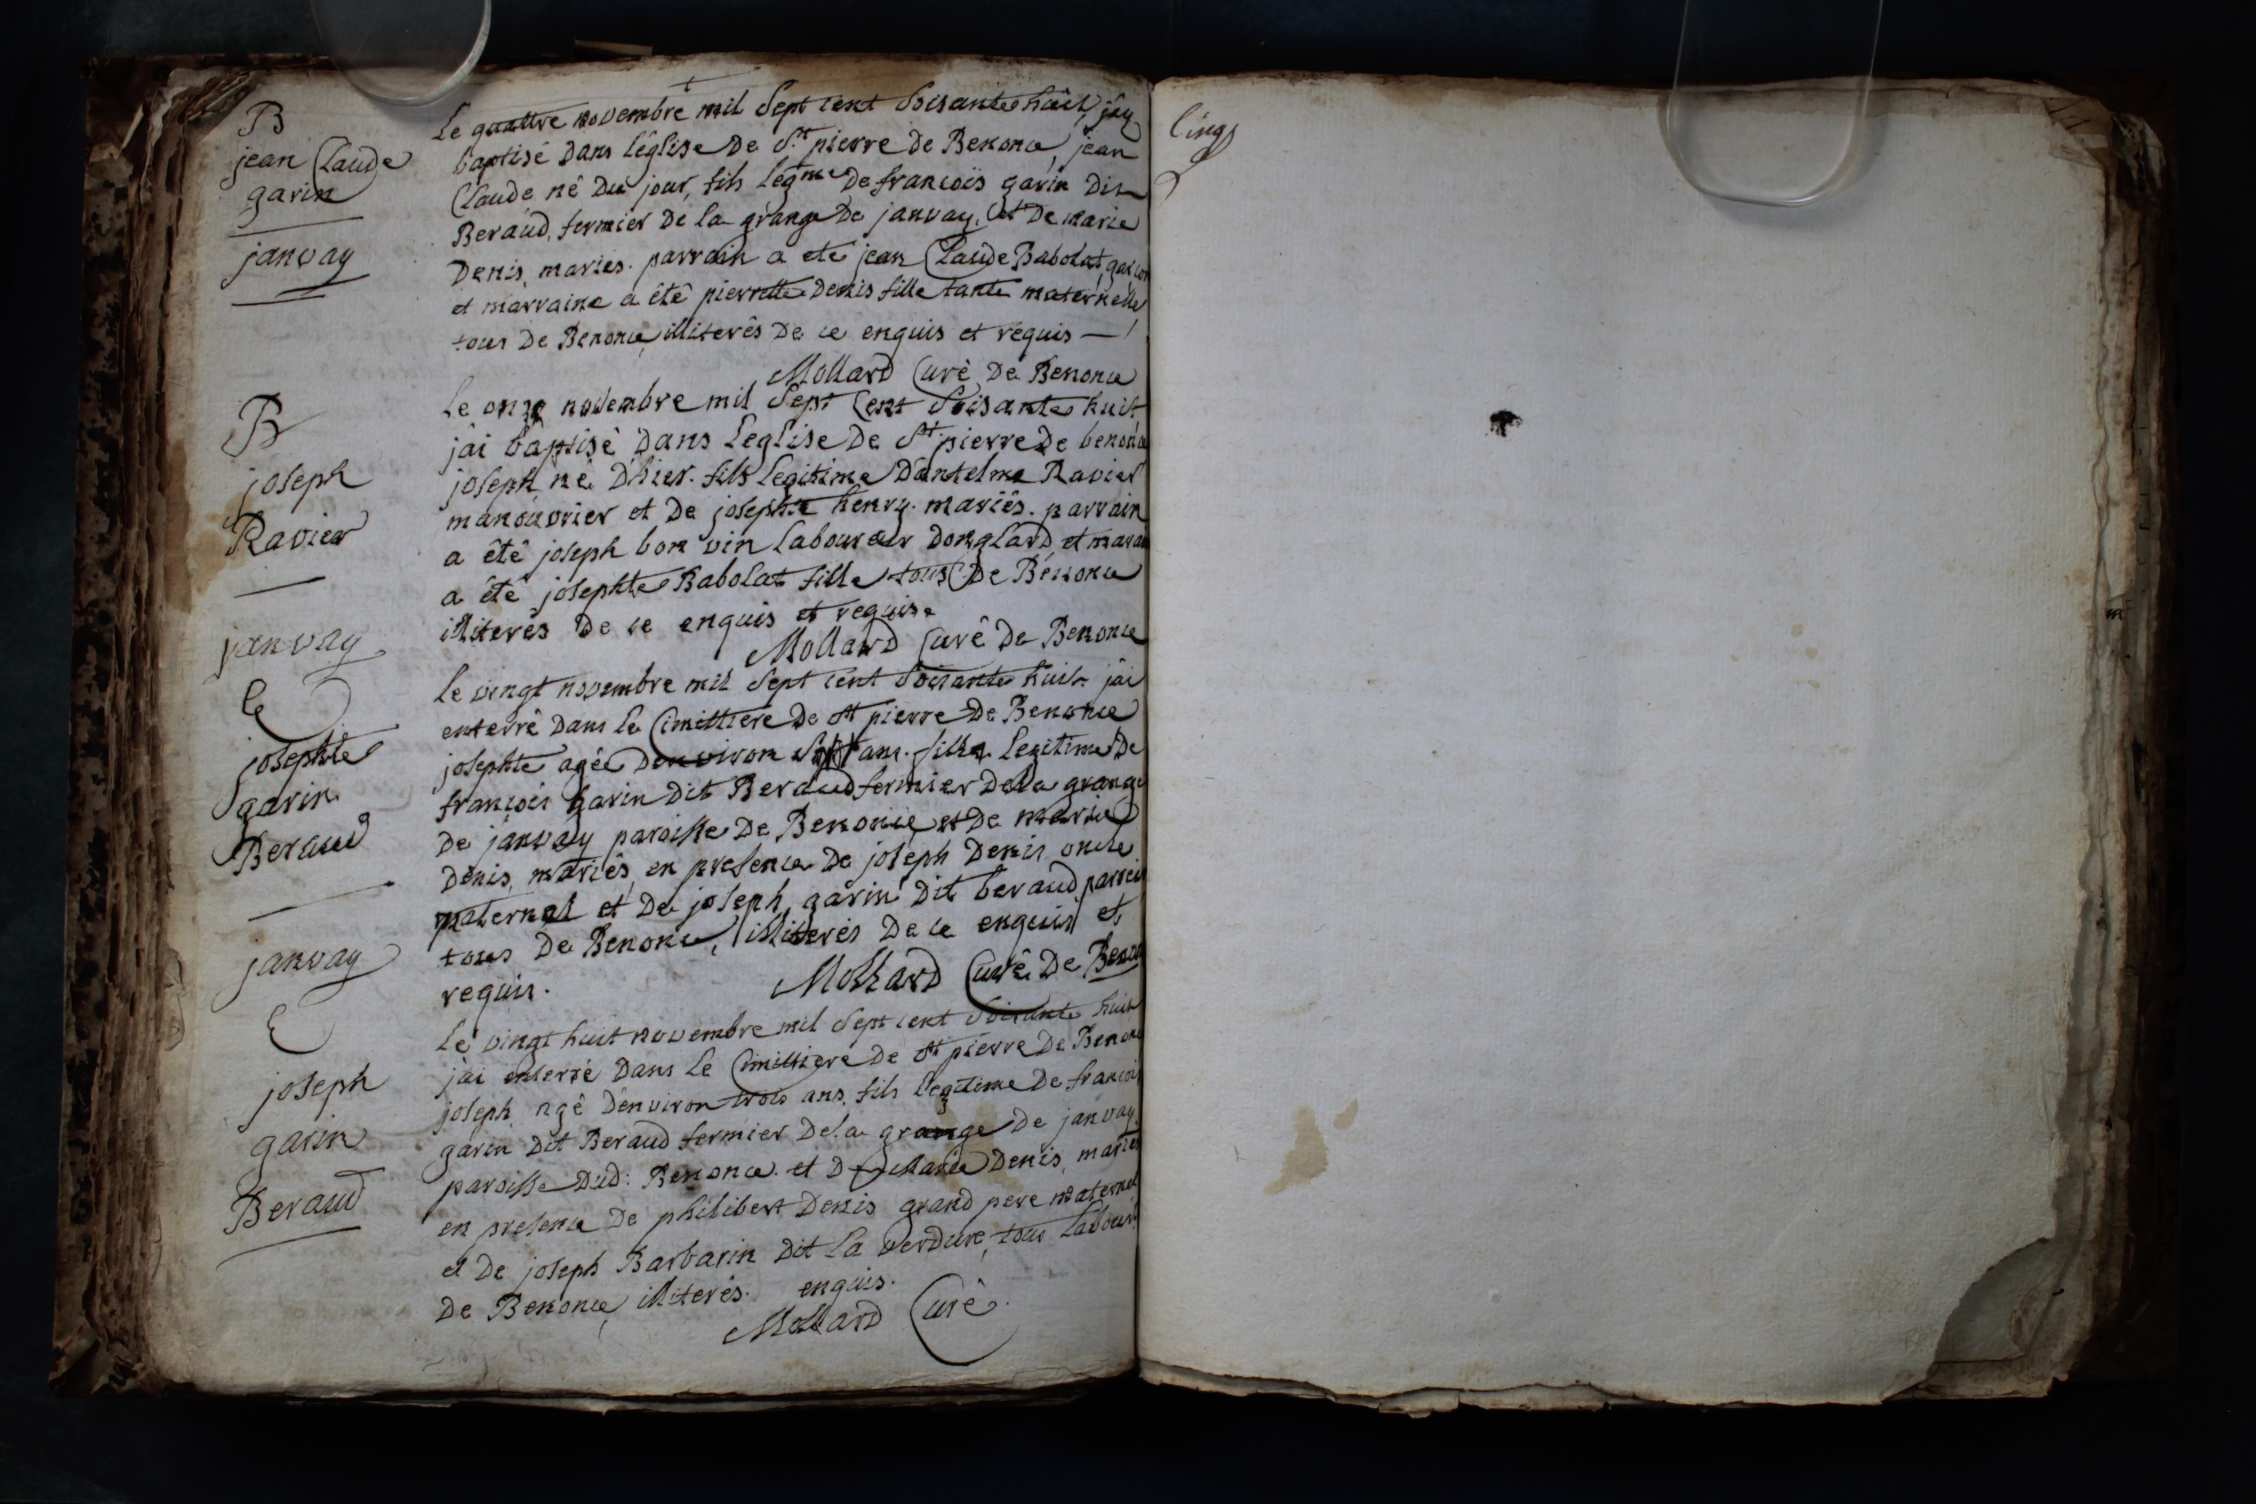 B
jean Claude
garin
janvay
Le quattre novembre mil Sept cent Soisante huit, jay
baptisé dans l'église de St pierre de Benonce, jean
Claude né du jour, fils legme de francois garin dit
Beraud, fermier de la grange de janvay, et de marie
Denis, mariés. parrain a eté jean Claude Babolat, garcon
et marraine a été pierrette Denis fille tante maternelle,
tous de Benonce, illiterés de ce enquis et requis —
Mollard Curé de Benonce
B
joseph
Ravier
janvay
Le onze novembre mil Sept Cent Soisante huit
jai baptisé dans Leglise de St pierre de benonce
joseph, né d'hier. fils Legitime d'antelme Ravier
manouvrier et de josephte henry. mariés. parrain
a été joseph bon vin Laboureur donglard, et marai
a été josephte Babolat fille tous de Benonce
illiterés de ce enquis et requis.
Mollard Curé de Benonce
josephte
garin
Beraud
janvay
Le vingt novembre mil Sept cent Soisante huit jai
enterré dans le Cimittiere de St pierre de Benonce
josephte agée denviron ans. fille Legitime de
francois garin dit Beraud fermier de la grange
de janvay paroisse de Benonce, et de marie
Denis, mariés, en presence de joseph Denis oncle
maternel et de joseph garin dit beraud parrein
tous de Benonce, illiterés de ce enquis et
requis.
Mollard Curé de Benon
joseph
garin
Beraud
Le vingt huit novembre mil Sept cent Soisante huit
jai enterré dans Le Cimittiere de St pierre de Benonc
joseph agé denviron trois ans, fils legitime de francois
garin dit Beraud fermier de la grange de janvay,
paroisse dud: Benonce. et de Marie Denis, mariés
en presence de philibert Denis grand pere maternel
et de joseph Barbarin dit La verdure, tous Labour
de Benonce, illiterés. enquis.
Mollard Curé.